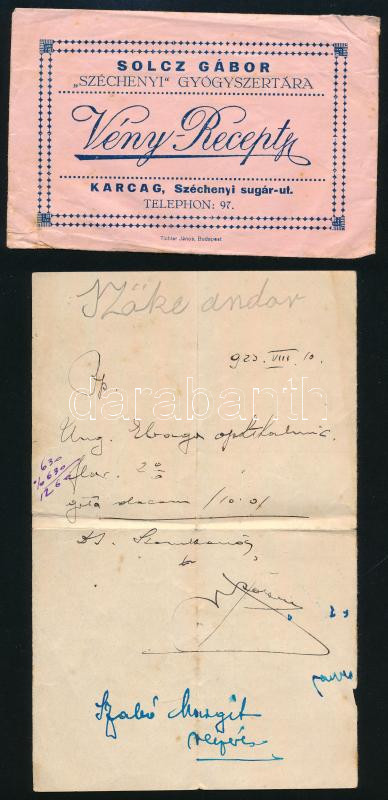 SOLCZ GÁBOR
„SZÉCHENYI“ GYÓGYSZERTÁRA
Vény-Recept
KARCAG, Széchenyi sugár-ut.
TELEPHON: 97.
Tichler János, Budapest
Szőke andor
923 VIII 10.
Rp.
Ung. ophthalmic.
flav. 2%
decem /10.0/
630
630
1260
DS.
Szabó Margit
darabanth